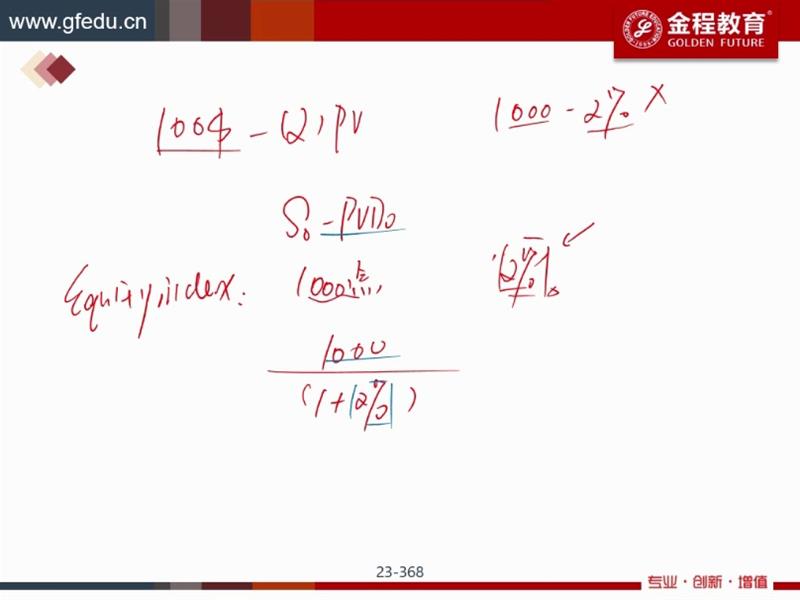 www.gfedu.cn
金程教育
GOLDEN FUTURE
100$ - (2) PV
1000 - 2% X
S₀ - PVD₀
Equity index: 1000点
2%
1000
(1+2%)
23-368
专业·创新·增值